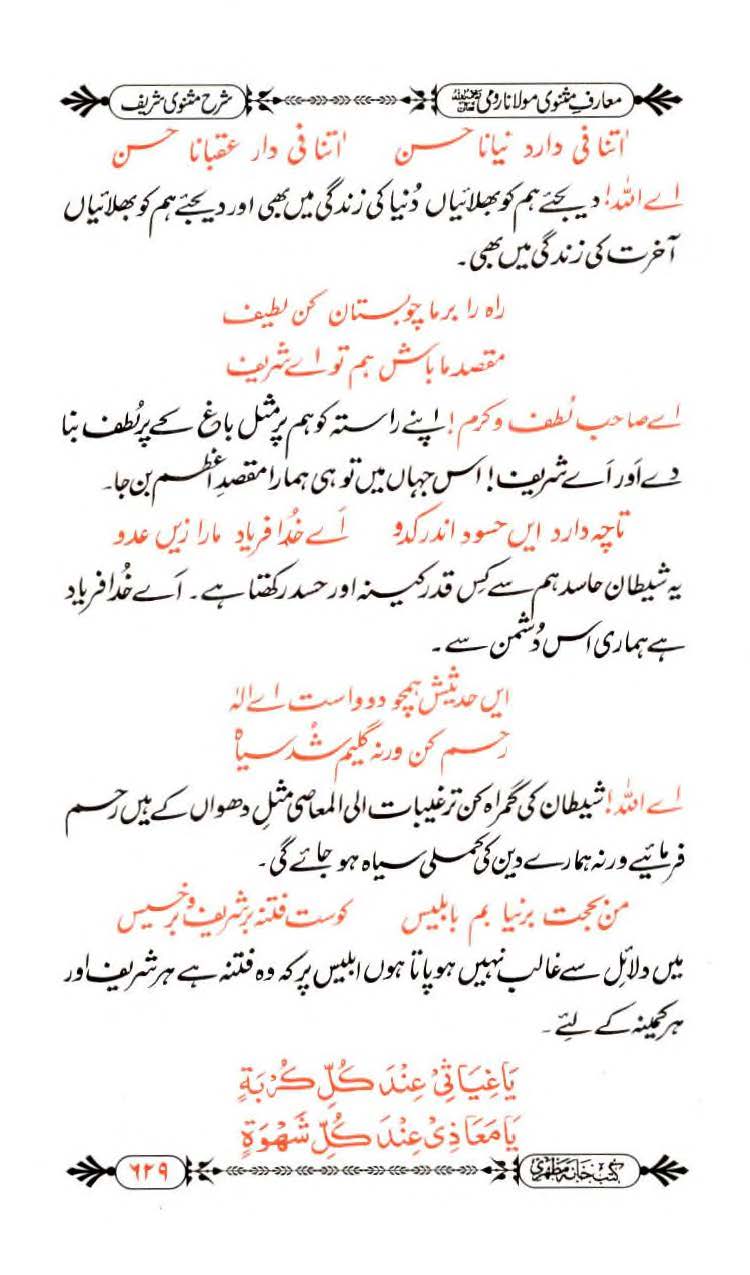 معارفِ مثنوی مولانا رومی رحمۃ اللہ علیہ شرح مثنوی شریف
اٰتنا فی دارد نیانا حسن اٰتنا فی دار عقبانا حسن
اے اللہ! دیجئے ہم کو بھلائیاں دُنیا کی زندگی میں بھی اور دیجئے ہم کو بھلائیاں
آخرت کی زندگی میں بھی۔
راہ را بر ما چو بستان کن لطیف
مقصد ما باش ہم تو اے شریف
اے صاحب لُطف و کرم! اپنے راستہ کو ہم پر مثل باغ کے پرلُطف بنا
دے اَور اَے شریف! اس جہاں میں تو ہی ہمارا مقصدِ اعظم بن جا۔
تاچہ دارد ایں حسود اندر کدو اَے خُدا فریاد مارا زیں عدو
یہ شیطان حاسد ہم سے کِس قدر کینہ اور حسد رکھتا ہے۔ اَے خُدا فریاد
ہے ہماری اس دُشمن سے۔
ایں حدیثش ہمچو دودست اے الٰہ
رحم کن ورنہ گلیمم شُد سیاہ
اے اللہ! شیطان کی گمراہ کن ترغیبات الی المعاصی مثلِ دھواں کے ہیں رحم
فرمائیے ورنہ ہمارے دین کی کملی سیاہ ہو جائے گی۔
من بحجت برنیا یم بابلیس کوست فتنہ بر شریف و بر خسیس
میں دلائل سے غالب نہیں ہو پاتا ہوں ابلیس پر کہ وہ فتنہ ہے ہر شریف اور
ہر کمینہ کے لئے۔
يَا غِيَاثِيْ عِنْدَ كُلِّ كُرْبَةٍ
يَا مَعَاذِىْ عِنْدَ كُلِّ شَهْوَةٍ
کتب خانہ مظہری ۶۲۹